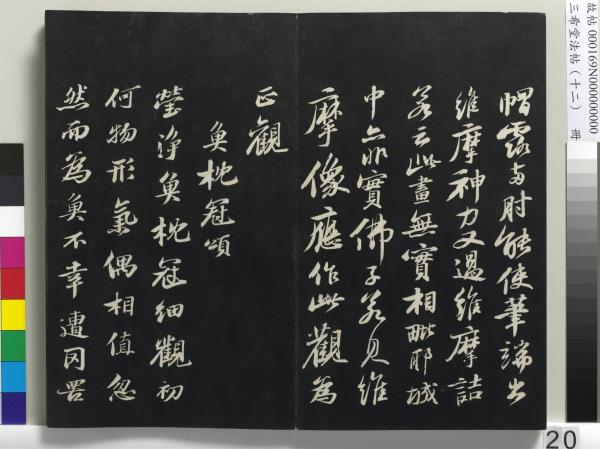 帽露兩肘能使筆端出
維摩神力又過維摩詰
若云此畫無實相毗耶城
中亦非實佛子若見維
摩像應作此觀為
正觀
魚枕冠頌
瑩淨魚枕冠細觀初
何物形氣偶相值忽
然而為魚不幸遭罔罟
故帖 000169N000000000
三希堂法帖(十二) 冊
20